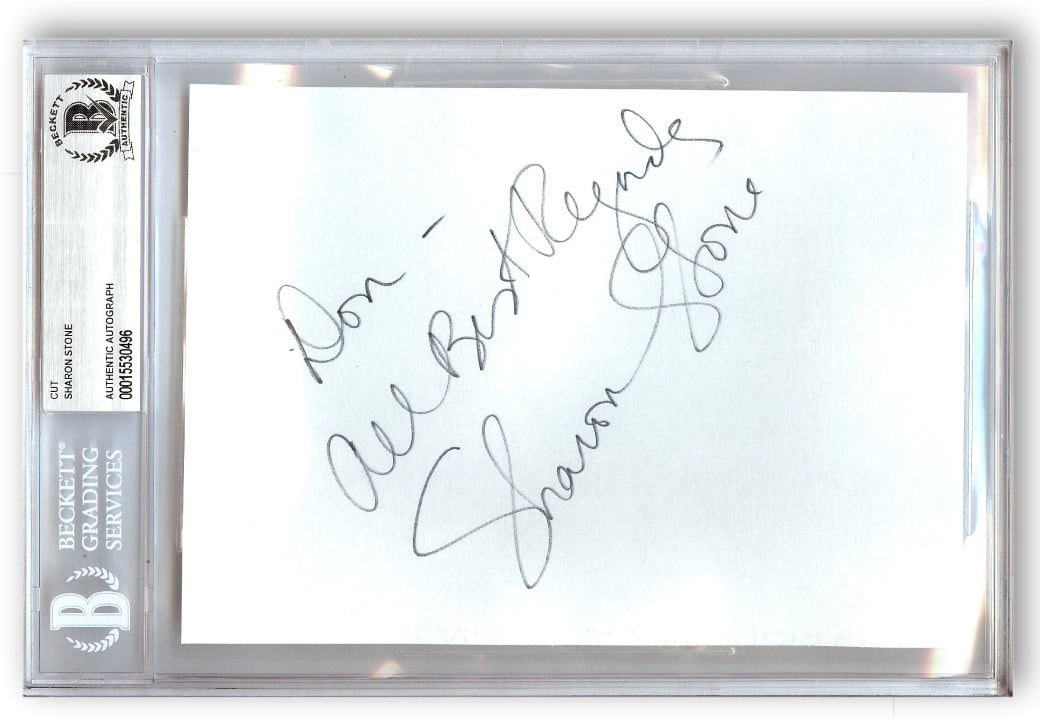 BECKETT
AUTHENTIC
B
CUT
SHARON STONE
AUTHENTIC AUTOGRAPH
00015530496
BECKETT®
GRADING
SERVICES
B
Don -
All Best Regards
Sharon Stone